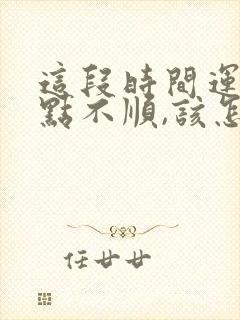 這段時間運
點不順,該怎
任廿廿